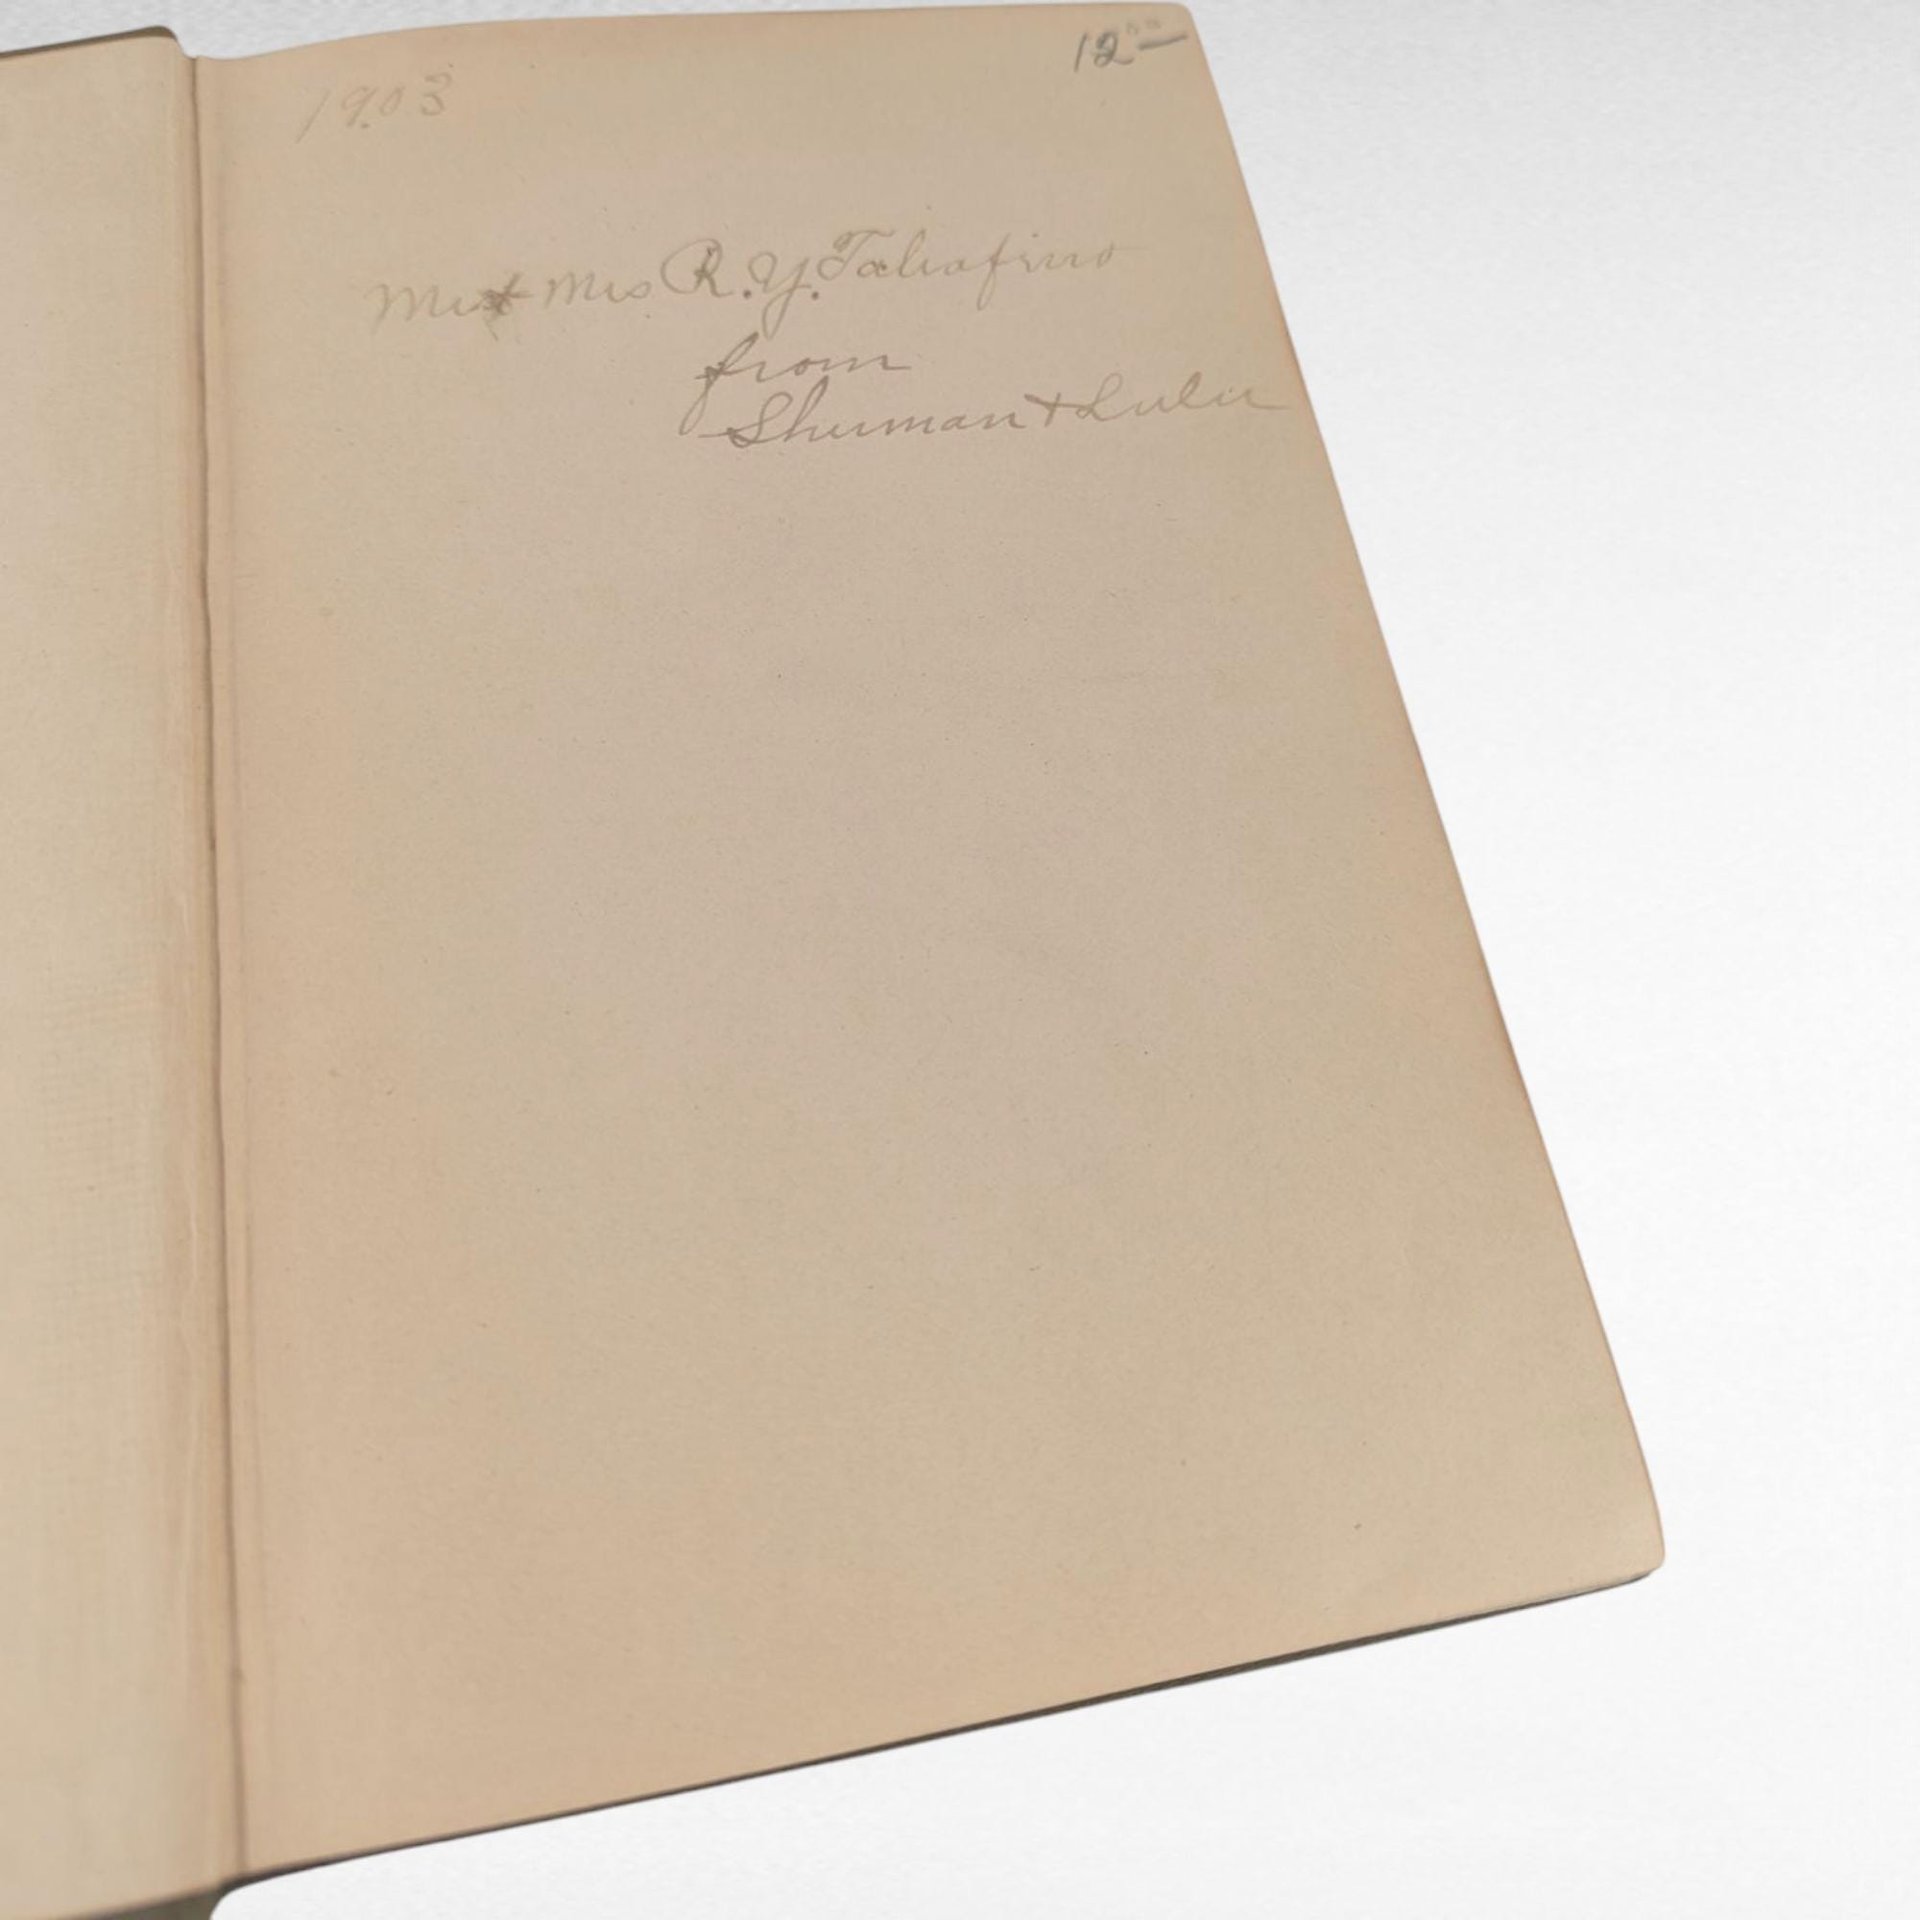 1903
12.00
Mr & Mrs R. Y. Taliaferro
from
Sherman & Lulu